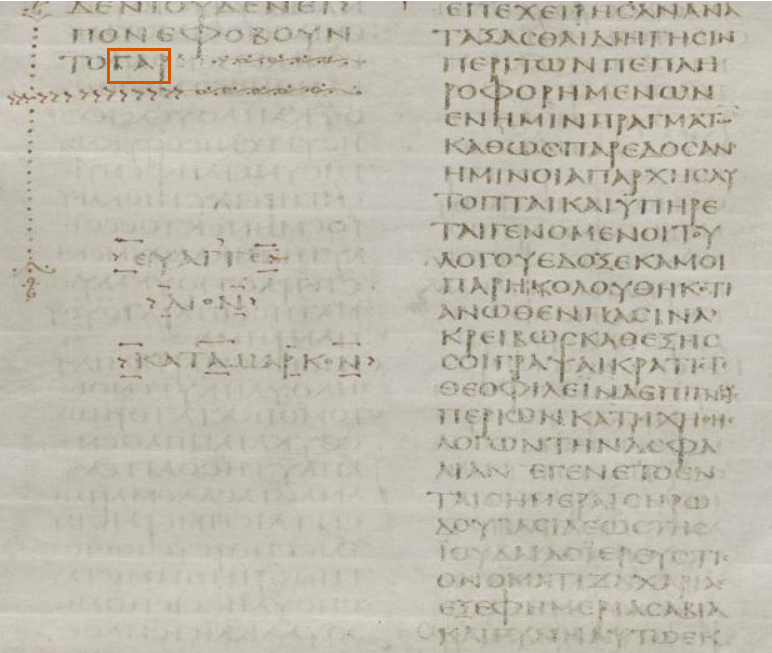 ΔΕΝΙΟΥΔΕΝΕΙ
ΠΟΝΕΦΟΒΟΥΝ
ΤΟΓΑΡ
ΕΥΑΓΓΕ
ΛΙΟΝ
ΚΑΤΑΜΑΡΚΟΝ
ΕΠΕΧΕΙΡΗСΑΝΑΝΑ
ΤΑΞΑСΘΑΙΔΙΗΓΗСΙΝ
ΠΕΡΙΤΩΝΠΕΠΛΗ
ΡΟΦΟΡΗΜΕΝΩΝ
ΕΝΗΜΙΝΠΡΑΓΜΑΤΩ
ΚΑΘΩСΠΑΡΕΔΟСΑΝ
ΗΜΙΝΟΙΑΠΑΡΧΗСΑΥ
ΤΟΠΤΑΙΚΑΙΫΠΗΡΕ
ΤΑΙΓΕΝΟΜΕΝΟΙΤΟΥ
ΛΟΓΟΥΕΔΟΞΕΚΑΜΟΙ
ΠΑΡΗΚΟΛΟΥΘΗΚΟΤΙ
ΑΝΩΘΕΝΠΑСΙΝΑ
ΚΡΕΙΒΩСΚΑΘΕΞΗС
СΟΙΓΡΑΨΑΙΚΡΑΤΙСΤΕ
ΘΕΟΦΙΛΕΙΝΑΕΠΙΓΝΩС
ΠΕΡΙΩΝΚΑΤΗΧΗΘΗС
ΛΟΓΩΝΤΗΝΑСΦΑ
ΛΙΑΝ ΕΓΕΝΕΤΟΕΝ
ΤΑΙСΗΜΕΡΑΙСΗΡΩ
ΔΟΥΒΑСΙΛΕΩСΤΗС
ΙΟΥΔΑΙΑСΙΕΡΕΥСΤΙС
ΟΝΟΜΑΤΙΖΑΧΑΡΙΑС
ΕΞΕΦΗΜΕΡΙΑСΑΒΙΑ
ΚΑΙΓΥΝΗΑΥΤΩΕΚ